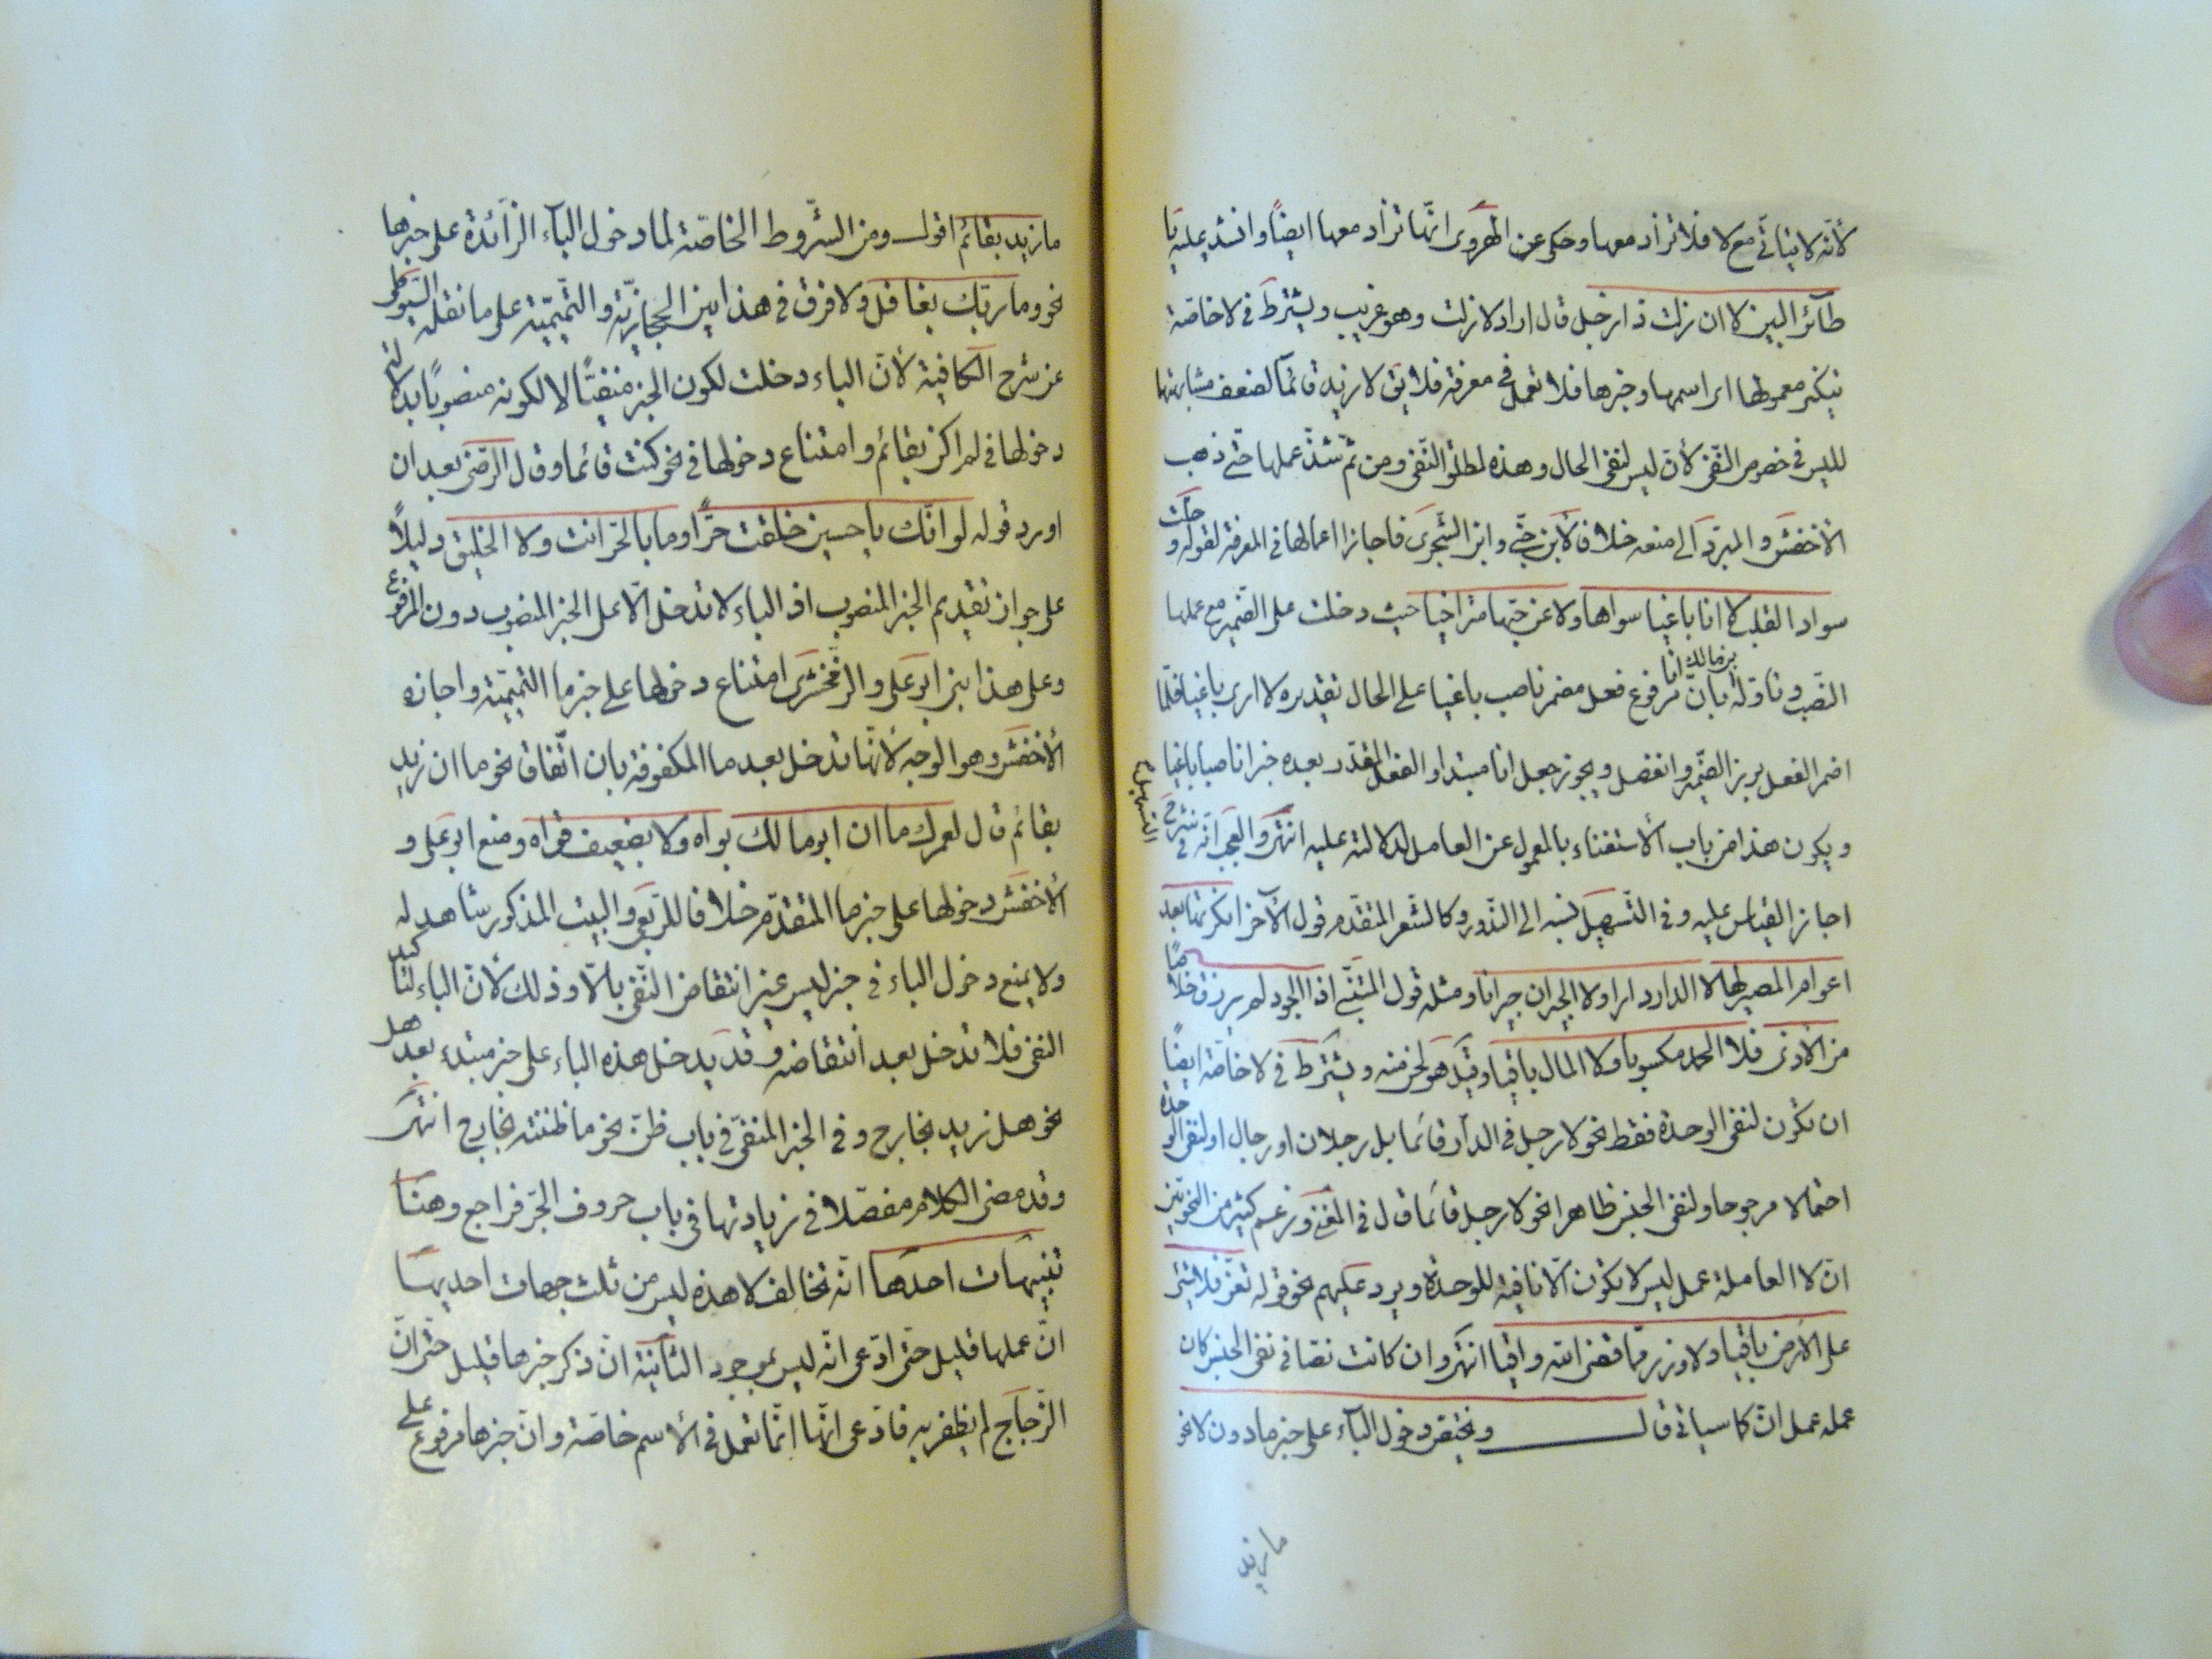 لأنّه لا ينافي مع لا فلا تزاد معها وحكى عن الهروى انّها تزاد معها ايضاً وانشد عليه يا
طآئر البين لا ان زلت ذا رجل قال اراد لا زلت وهو غريب ويشترط في لا خاصّة
تنكير معمولها اى اسمها وخبرها فلا تعمل في معرفة فلا يق لا زيد قائماً لضعف مشابهتها
لليس في خصوص النّفى لأنّ ليس لنفى الحال وهذه لمطلق النّفى ومن ثمّ شذّ عملها حتّى ذهب
الأخفش والمبرّد الى منعه خلافا لأبن جنّى وابن الشّجرى فاجازا اعمالها في المعرفة لقوله و حلّت
سواد القلب لا انا باغيا سواها ولا عن حبّها متراخيا حيث دخلت على الضّمير مع عملها
النّصب وتاوّله ابن مالك بانّ انا مرفوع فعل مضمر ناصب باغيا على الحال تقديره لا ارى باغيا فلمّا
اضمر الفعل برز الضّمير وانفصل ويجوز جعل انا مبتدا والفعل المقدّر بعده خبرا ناصبا باغيا
ويكون هذا من باب الأستغناء بالمعمول عن العامل لدلالته عليه انتهى والعجب انّه في شرح التسهيل
اجاز القياس عليه وفى التّسهيل نسبه الى النّدور وكالشّعر المتقدّم قول الآخر انكرتها بعد
اعوام مضين لها لا الدار دارا ولا الجيران جيرانا ومثله قول المتنبّى اذا الجود لم يرزق خلاصا
من الأذى فلا الحمد مكسوبا ولا المال باقيا ويشترط في لا خاصّة ايضاً
ان تكون لنفى الوحدة فقط نحو لا رجل في الدّار قائما بل رجلان او رجال او لنفى الوحدة
احتمالا مرجوحا ولنفى الجنس ظاهرا نحو لا رجل قائما قال في المغنى وزعم كثير من النحويّين
انّ لا العاملة عمل ليس لا تكون الّا نافية للوحدة ويرد عليهم نحو قوله تعزّ فلا شئ
على الأرض باقيا ولا وزر ممّا قضى الله واقيا انتهى وان كانت نصّا في نفى الجنس كان
عمله عمل انّ كما سياتى قال وتختصّ دخول البآء على خبر ما دون لا نحو
ما زيد
ما زيد بقائم اقول ومن الشّروط الخاصّة لما دخول البآء الزّآئدة على خبرها
نحو وما ربّك بغافل ولا فرق في هذا بين الحجازيّة والتّميميّة على ما نقله السّيوطى
عن شرح الكافية لأنّ الباء دخلت لكون الخبر منفيّاً لا لكونه منصوبًا بدلالة
دخولها في لم اكن بقائم وامتناع دخولها في نحو كنت قائما وقال الرّضى بعد ان
اورد قوله لو انّك يا حسين خلقت حرّا وما بالحرّ انت ولا الخليق دليلاً
على جواز تقديم الخبر المنصوب اذ الباء لا تدخل الّا على الخبر المنصوب دون المرفوع
وعلى هذا بنى ابو على والزّمخشرى امتناع دخولها على خبر ما التّميميّة واجازه
الأخفش وهو الوجه لأنّها تدخل بعد ما المكفوفة بان اتّفاقا نحو ما ان زيد
بقائم قال لعمرك ما ان ابو مالك بواه ولا بضعيف قواه ومنع ابو على و
الأخفش دخولها على خبر ما المتقدّم خلافا للرّبعى والبيت المذكور شاهد له
ولا يمنع دخول الباء في خبر ليس غير انتقاض النّفى بالّا وذلك لأنّ الباء لتاكيد
النفى فلا تدخل بعد انتقاضه وقد يدخل هذه الباء على خبر مبتدء بعد هل
نحو هل زيد بخارج وفى الخبر المنفى في باب ظنّ نحو ما ظننته بخارج انتهى
وقد مضى الكلام مفصّلا في زيادتها في باب حروف الجرّ فراجع وهنا
تنبيهات احدها انّه تخالف لا هذه ليس من ثلث جهات احديها
انّ عملها قليل حتّى ادّعى انّه ليس بموجود الثّانية انّ ذكر خبرها قليل حتّى انّ
الزّجاج لم يظفر به فادّعى انّها انّما تعمل في الأسم خاصّة وانّ خبرها مرفوع على